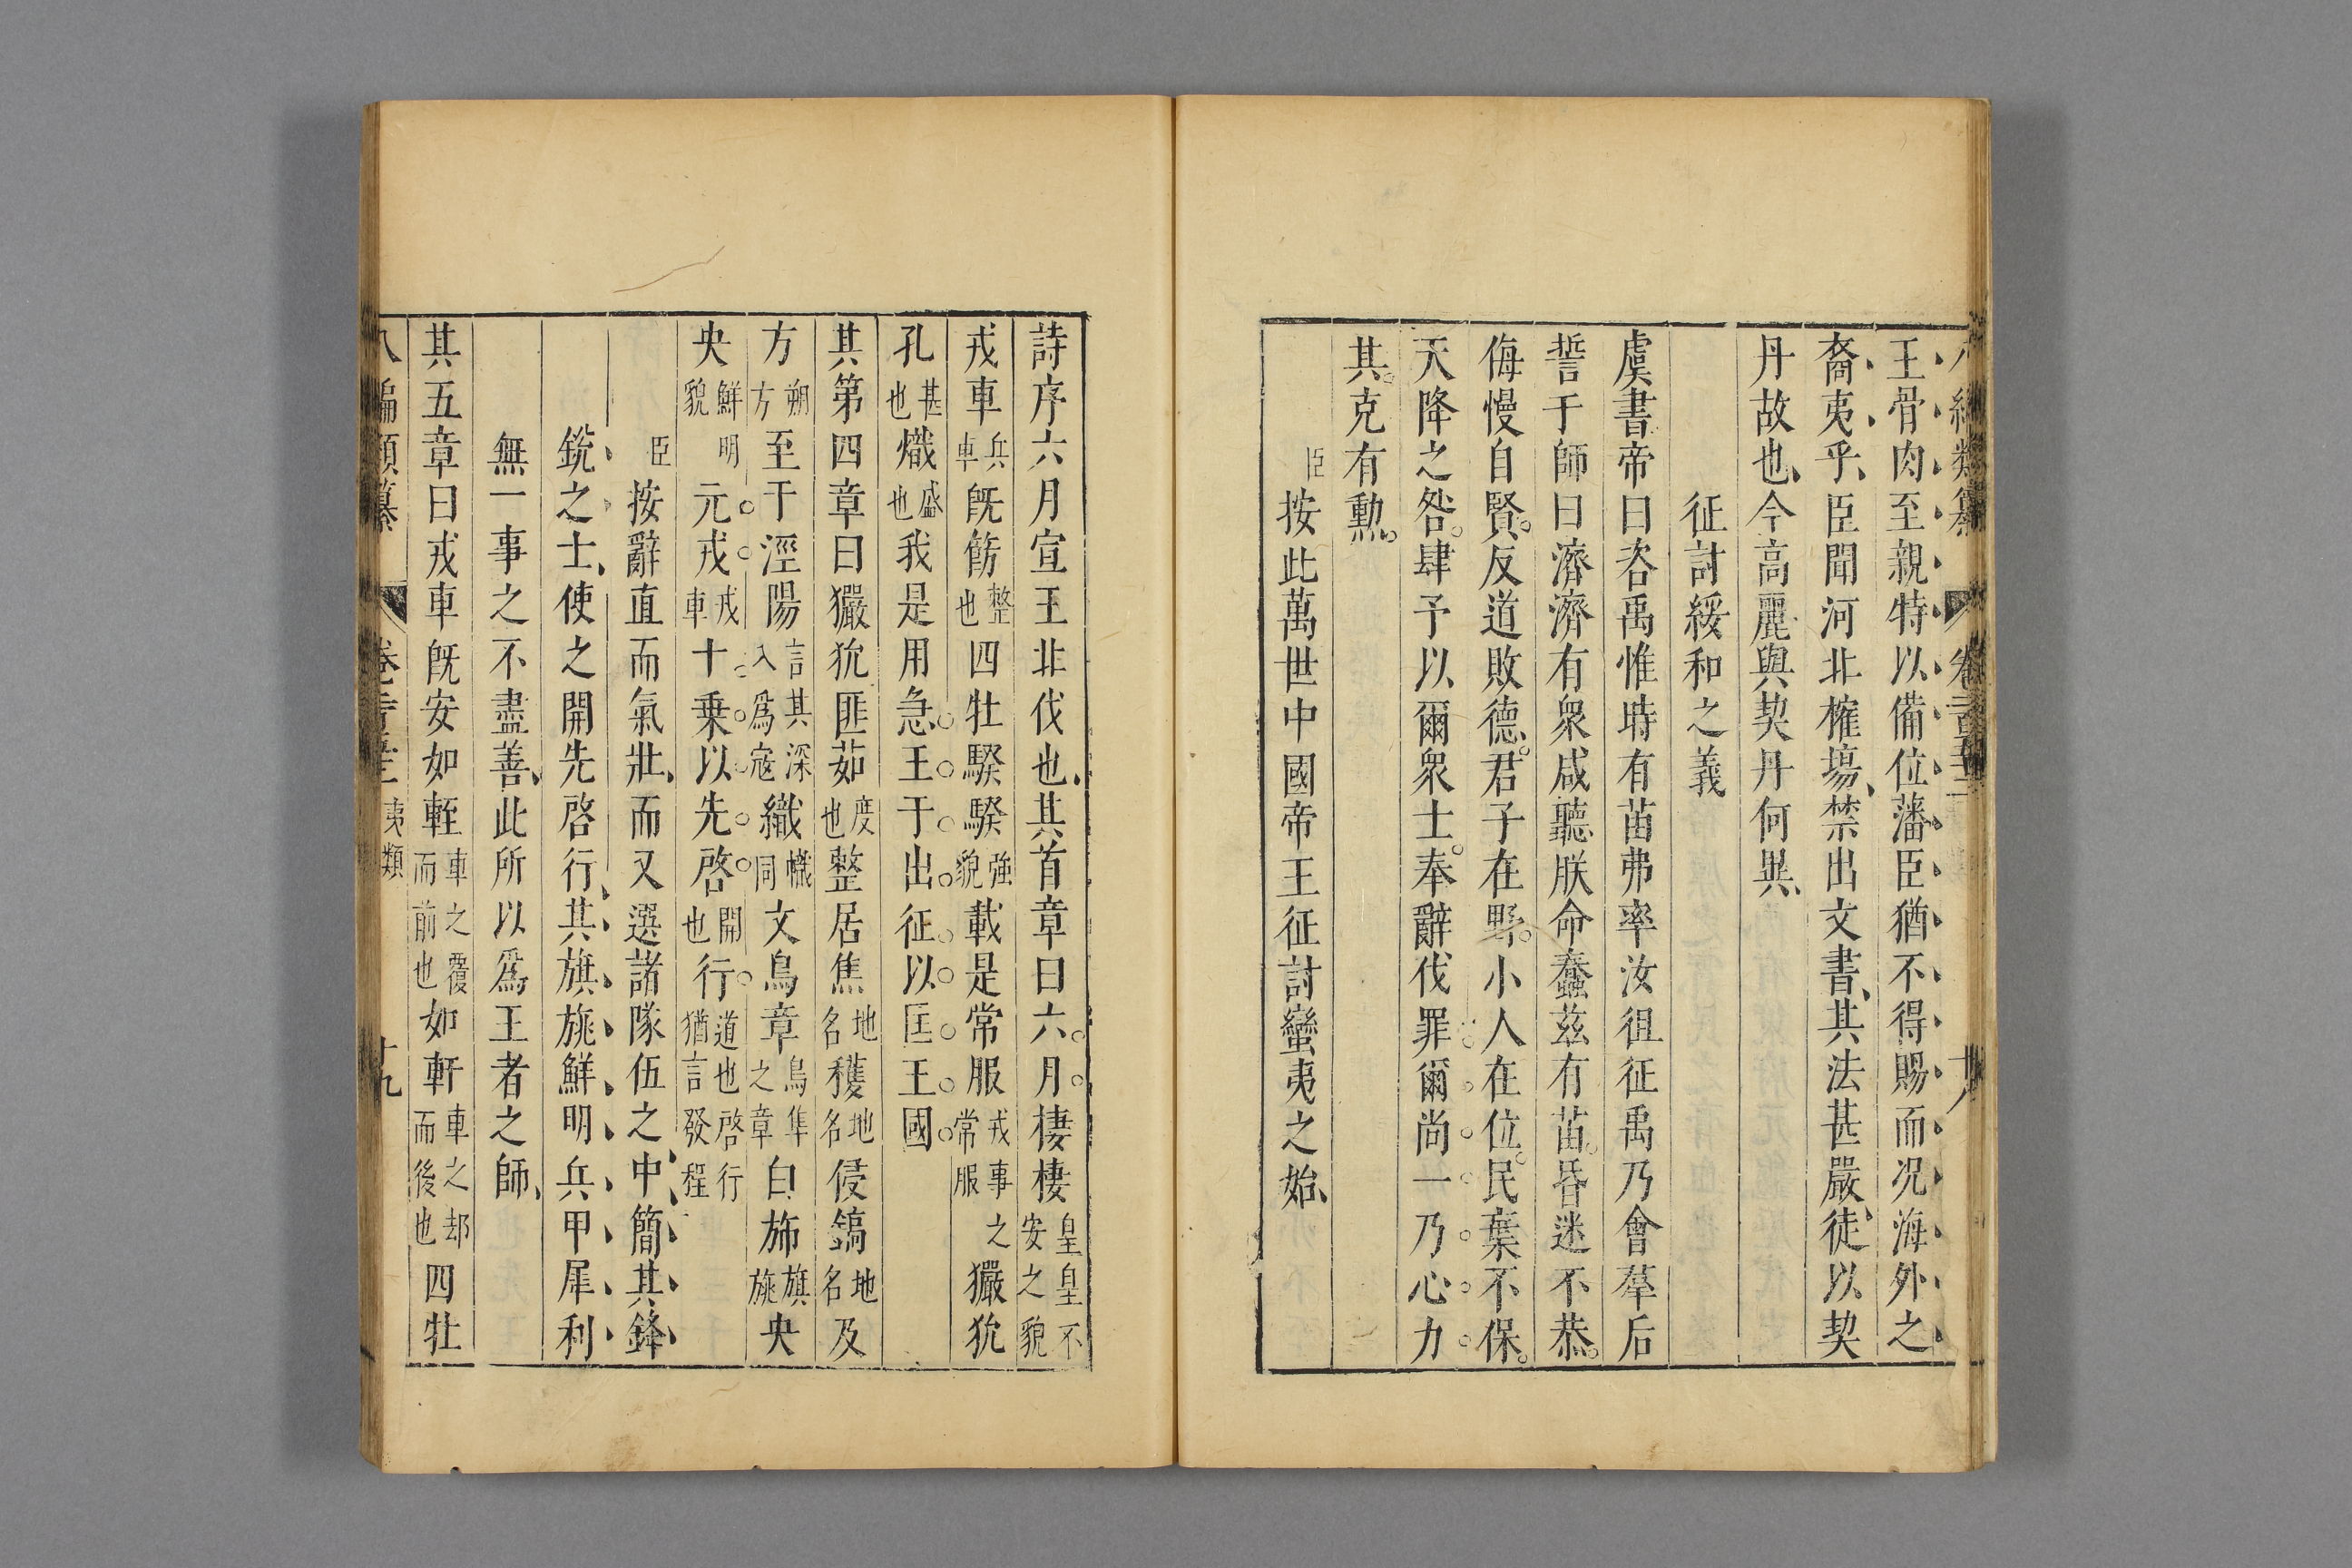 王骨肉至親特以備位藩臣猶不得賜而況海外之
裔夷乎臣聞河北榷塲禁出文書其法甚嚴徒以契
丹故也今高麗與契丹何異
征討綏和之義
虞書帝曰咨禹惟時有苗弗率汝徂征禹乃會羣后
誓于師曰濟濟有衆咸聽朕命蠢茲有苗昏迷不恭
侮慢自賢反道敗德君子在野小人在位民棄不保
天降之咎肆予以爾衆士奉辭伐罪爾尚一乃心力
其克有勳
臣按此萬世中國帝王征討蠻夷之始
詩序六月宣王北伐也其首章曰六月棲棲皇皇不安之貌
戎車兵車既飭整也四牡騤騤強貌載是常服戎事之常服玁狁
孔甚也熾盛也我是用急王于出征以匡王國
其第四章曰玁狁匪茹度也整居焦地名穫地名侵鎬地名及
方朔方至于涇陽言其深入爲寇織幟同文鳥章鳥隼之章白斾旗旐央
央鮮明貌元戎戎車十乗以先啓開也行道也啓行猶言發程
臣按辭直而氣壯而又選諸隊伍之中簡其鋒
銳之士使之開先啓行其旗旐鮮明兵甲犀利
無一事之不盡善此所以爲王者之師
其五章曰戎車既安如輊車之覆而前也如軒車之却而後也四牡
八編類纂 卷 夷類 十九